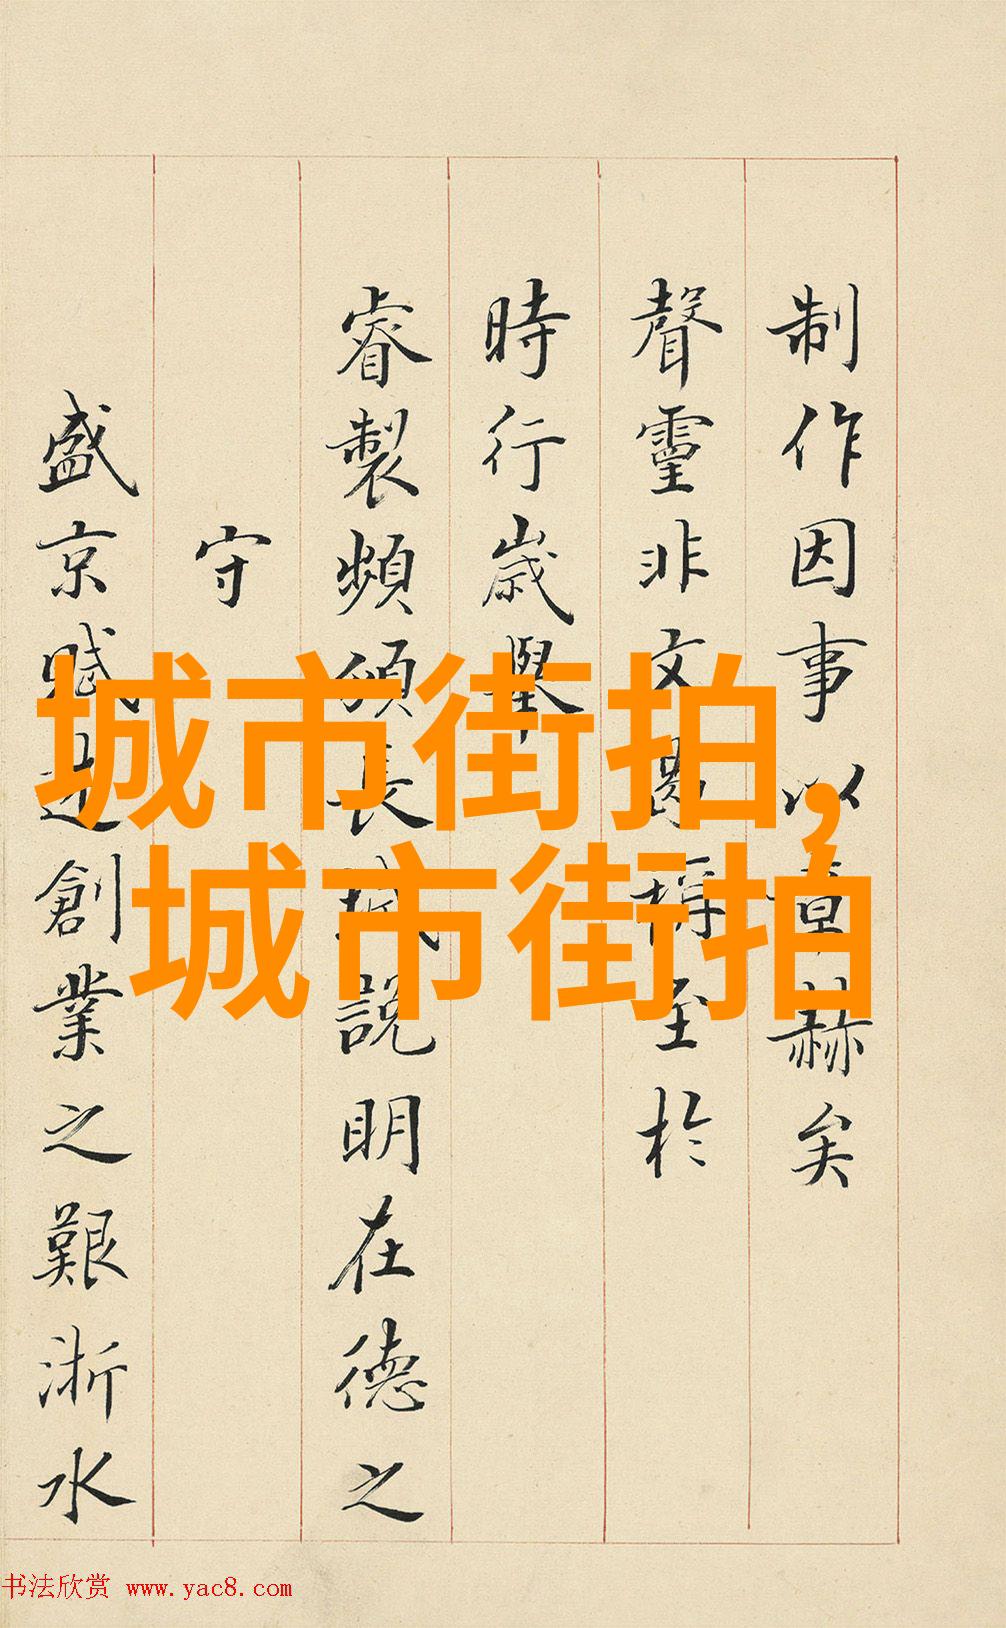 制作因事以章赫矣
聲靈非文曷稱至於
時行歲舉
睿製頻頒長城說明在德之
守
盛京賦述創業之艱浙水
城市街拍，
城市街拍
书法欣赏 www.yac8.com